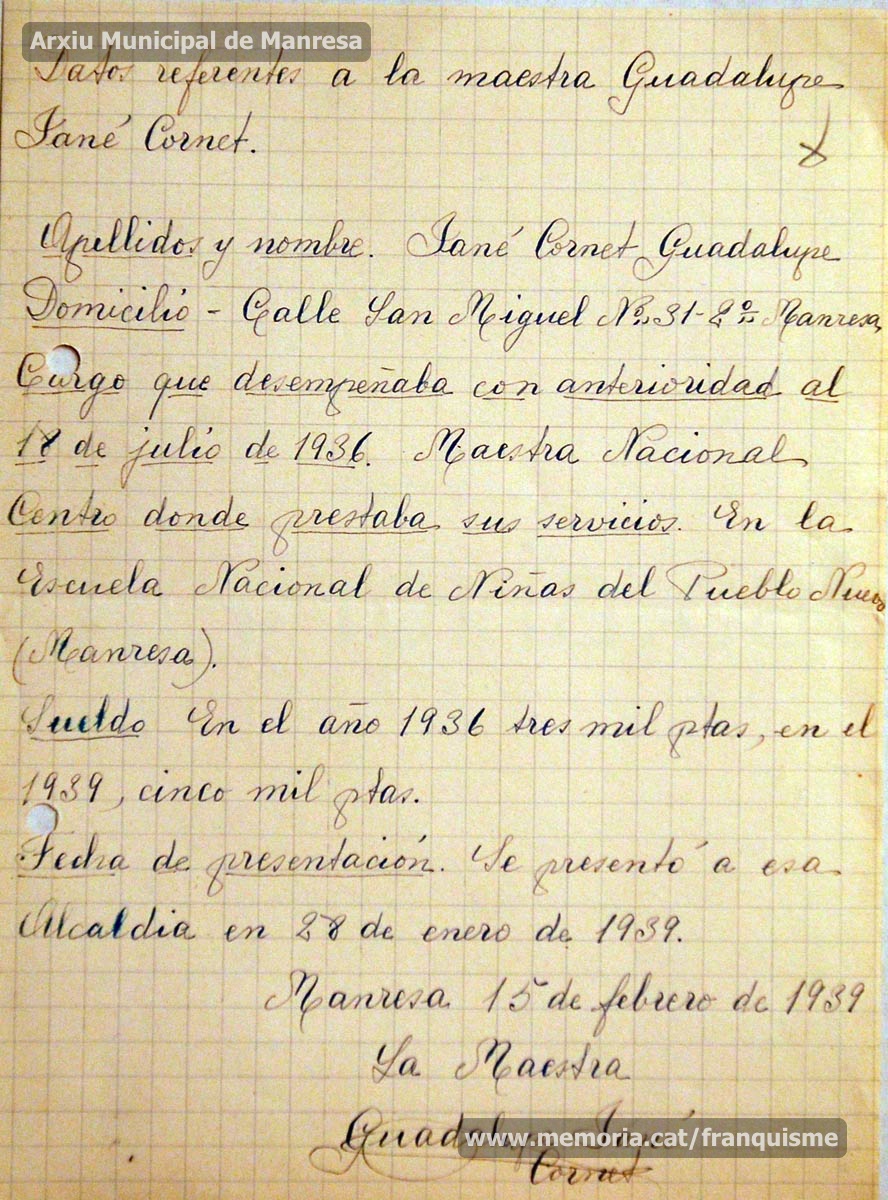 Arxiu Municipal de Manresa
Datos referentes a la maestra Guadalupe
Jané Cornet.
Apellidos y nombre. Jané Cornet Guadalupe
Domicilio - Calle San Miguel Nº 31-2º Manresa
Cargo que desempeñaba con anterioridad al
18 de julio de 1936. Maestra Nacional
Centro donde prestaba sus servicios. En la
Escuela Nacional de Niñas del Pueblo Nuevo
(Manresa).
Sueldo En el año 1936 tres mil ptas, en el
1939, cinco mil ptas.
Fecha de presentación. Se presentó a esa
Alcaldia en 28 de enero de 1939.
Manresa 15 de febrero de 1939
La Maestra
Guadalupe Jané
Cornet
www.memoria.cat/franquisme